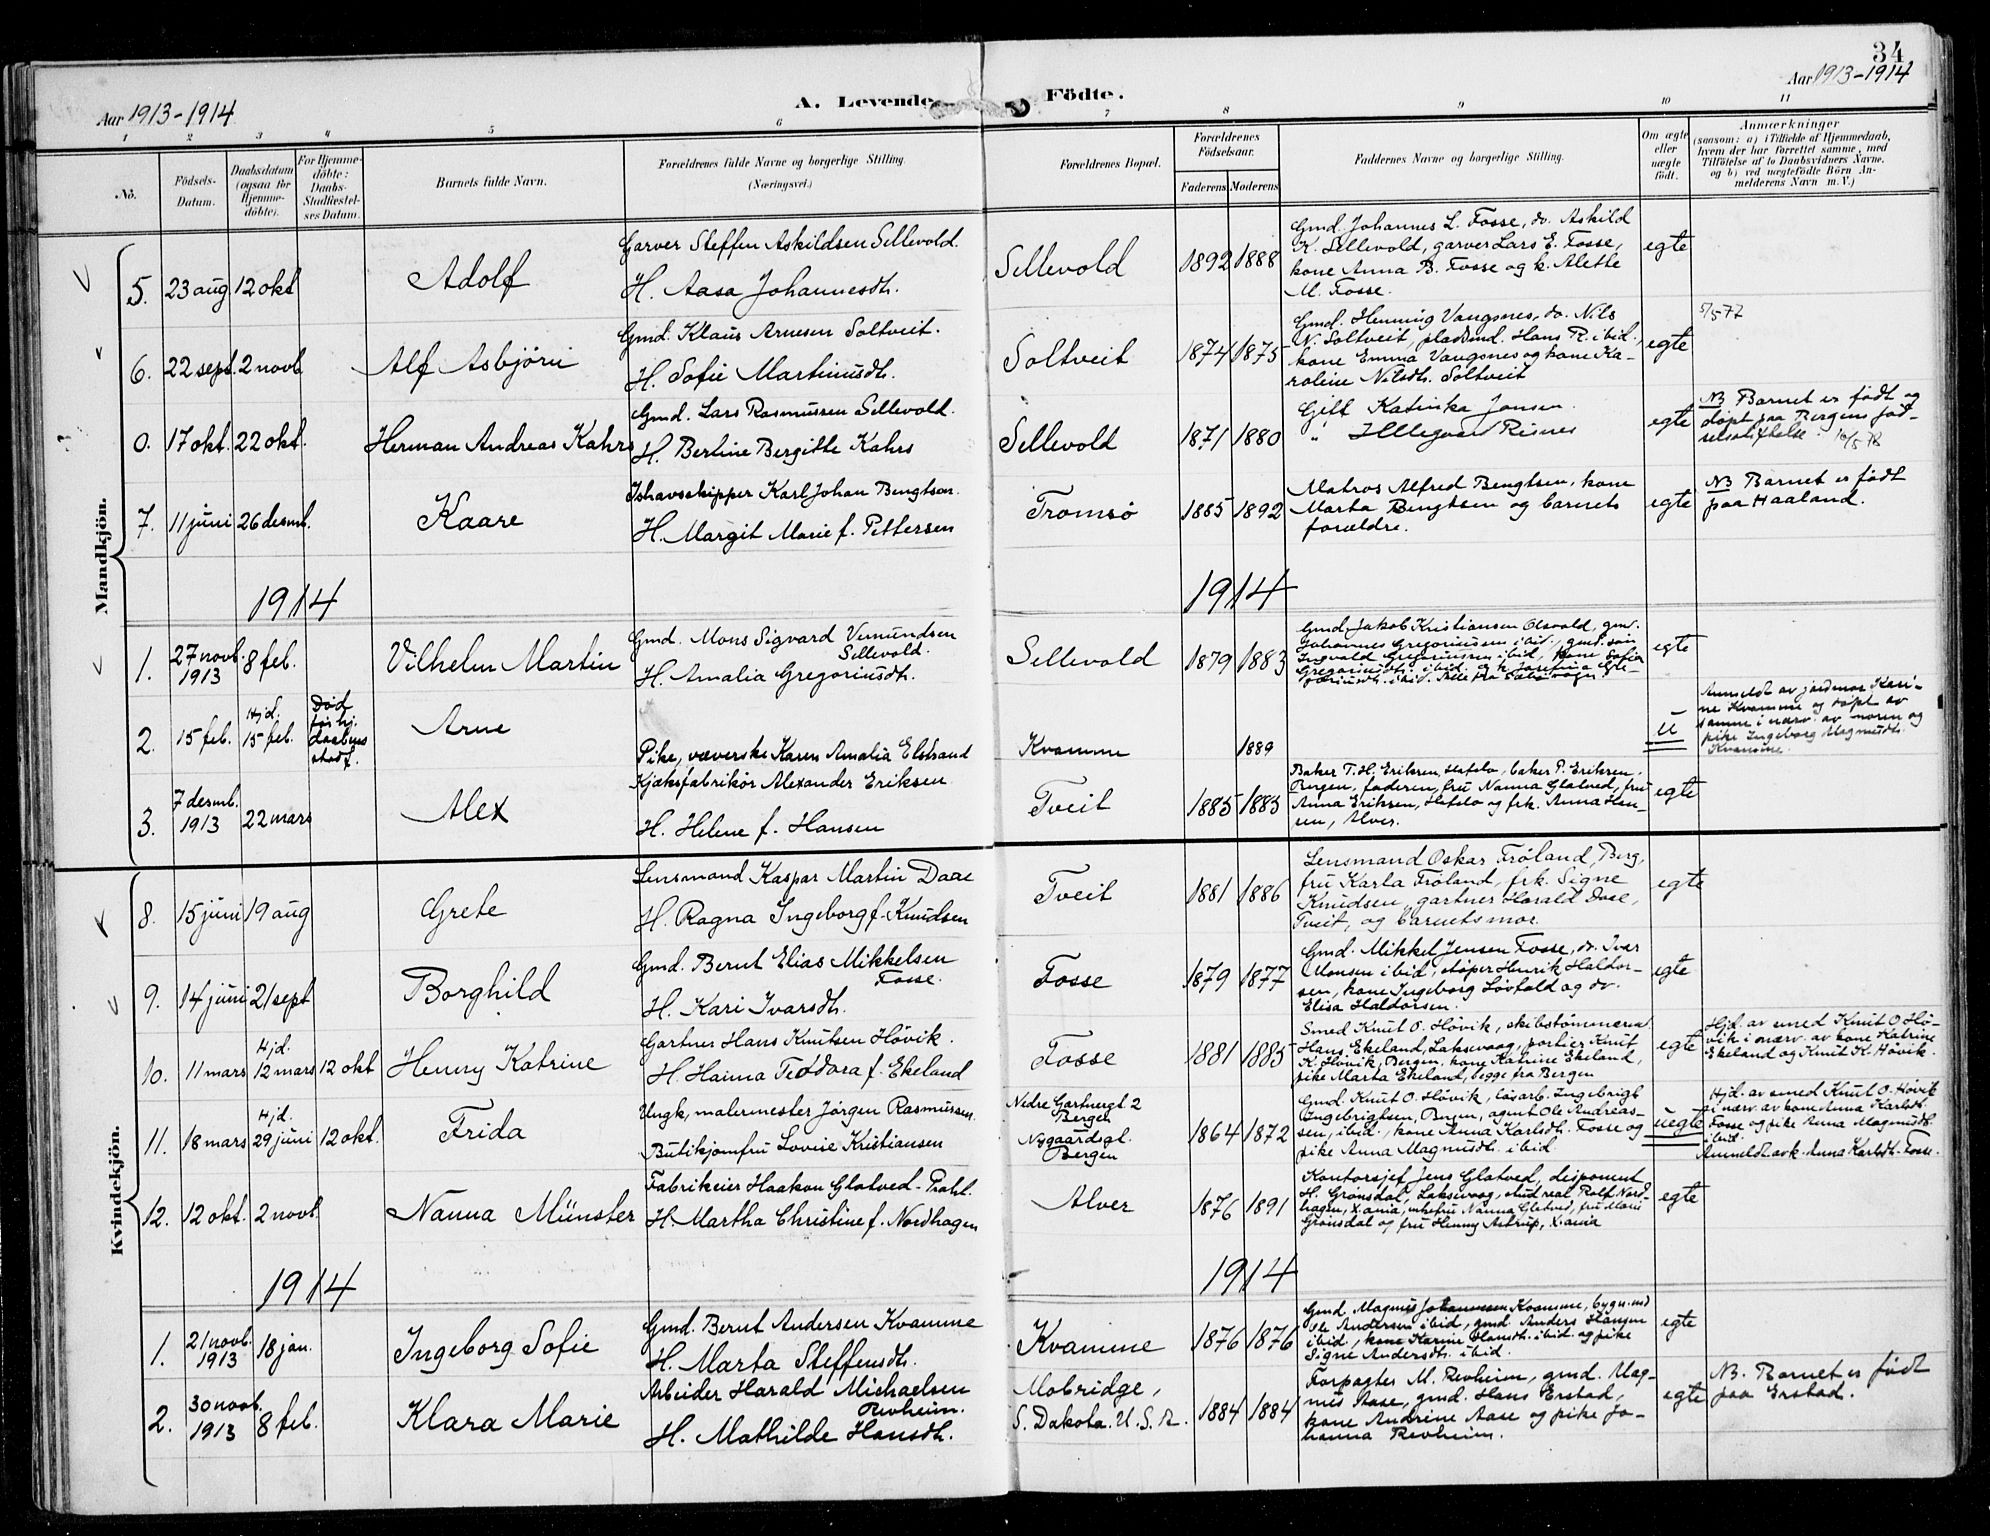 34
Aar 1913-1914
A. Levende Födte.
Aar 1913-1914
1 2 3 4 5 6 7 8 9 10 11
No.
Födsels-Datum.
Daabsdatum (ogsaa for Hjemme-döbte).
For Hjemme-döbte: Daabs-Stadfæstel-ses Datum.
Barnets fulde Navn.
Forældrenes fulde Navne og borgerlige Stilling.
(Næringsvei.)
Forældrenes Bopæl.
Forældrenes Födselsaar.
Faderens Moderens
Faddernes Navne og borgerlige Stilling.
Om ægte eller uægte födt.
Anmærkninger
(saasom: a) i Tilfælde af Hjemmedaab, hvem der har forrettet samme, med Tilföielse af to Daabsvidners Navne, og b) ved uægtefödte Börn An-melderens Navn m. V.)
Mandkjön.
5. 23 aug. 12 okt Adolf
Garver Steffen Askildsen Sellevold.
H. Aasa Johannesdh.
Sellevold 1892 1888
Gmd. Johannes L. Fosse, dr. Askild
K. Sellevold, garver Lars E. Fosse,
kone Anna B. Fosse og k. Alette
M. Fosse.
egte
6. 22 sept. 2 novb. Alf Asbjörn
Gmd. Klaus Arnesen Soltveit.
H. Sofie Martinusdh.
Soltveit 1874 1875
Gmd. Henning Vangsnes, dr. Nils
N. Soltveit, pladsmd. Hans R. ibid.,
kone Emma Vangsnes og kone Ka-
roline Nilsdh. Soltveit
egte
5/5-77
0. 17 okt. 22 okt. Herman Andreas Kahrs
Gmd. Lars Rasmussen Sellevold.
H. Bertine Bergitte Kahrs
Sellevold 1871 1880
Gift Katinka Jansen
" Risnes
egte
NB Barnet er født og
døpt paa Bergens fød-
selsstiftelse.
7. 11 juni 26 desmb. Kaare
Ishavsskipper Karl Johan Bengtson.
H. Margit Marie f. Pettersen
Tromsø 1885 1892
Matros Alfred Bengtsen, kone
Marta Bengtsen og barnets
forældre.
egte
NB Barnet er født
paa Haaland.
1914
1914
1. 27 novb. 1913 8 feb. Vilhelm Martin
Gmd. Mons Sigvard Vemundsen
Sellevold.
H. Amalia Gregoriusdh.
Sellevold 1879 1883
Gmd. Jakob Kristiansen Osvold, gmd.
Johannes Gregoriussen ibid., gmd. søn
Ingvald Gregoriussen ibid., kone Sofia
Gregoriusdh. ibid. og k. Josefina Gre-
goriusdh. ibid.
egte
2. 15 feb. Hjd. 15 feb.
Død
før hj.
daabens
stadf.
Arne
Pike, væverske Karen Amalia Elstrand
Kvamme 1889
u
Anmeldt av jordmor Kari-
ne Kvamme og døpt av
samme i nærv. av moren og
pike Ingeborg Magnusdh.
Kvamme.
3. 7 desmb. 1913 22 mars Alex
Kjæksfabrikør Alexander Eriksen
H. Helene f. Hansen
Tveit 1885 1883
Baker T. H. Eriksen, Hafslo, baker P. Eriksen,
Bergen, faderen, fru Nanna Glatved, fru
Anna Eriksen, Hafslo og frk. Anna Han-
sen, Alver.
egte
Kvindekjön.
8. 15 juni 19 aug Grete
Lensmand Kaspar Martin Daae
H. Ragna Ingeborg f. Knudsen
Tveit 1881 1886
Lensmand Oskar Frøland, Berg,
fru Karla Frøland, frk. Signe
Knudsen, gartner Harald Daae,
Tveit, og barnets mor.
egte
9. 14 juni 21 sept Borghild
Gmd. Bernt Elias Mikkelsen
Fosse.
H. Kari Ivarsdh.
Fosse 1879 1877
Gmd. Mikkel Jensen Fosse, dr. Ivar
Monsen ibid., støper Henrik Haldor-
sen, kone Ingeborg Løvfald og dr.
Elisa Haldorsen.
egte
10. 11 mars Hjd. 12 mars 12 okt Henny Katrine
Gartner Hans Knutsen Høvik.
H. Haima Teodora f. Ekeland
Fosse 1881 1885
Smed Knut O. Høvik, skibstømmermd.
Hans Ekeland, Laksevaag, portier Knut
K. Høvik, Bergen, kone Katrine Ekeland,
pike Marta Ekeland, begge fra Bergen
egte
Hjd. av smed Knut O. Hø-
vik i nærv. av kone Katrine
Ekeland og Knut K. Høvik.
11. 18 mars Hjd. 29 juni 12 okt. Frida
Ungk., malermester Jørgen Rasmussen.
Butikjomfru Lovise Kristiansen
Nedre Gartnergt. 2
Bergen
Nygaardsgt.
Bergen
1864 1872
Gmd. Knut O. Høvik, løsarb. Ingebrigt
Ingebrigtsen, Bergen, agent Ole Andreas-
sen, ibid., kone Anna Karlsdh. Fosse og
pike Anna Magnusdh. ibid.
uegte
Hjd. av smed Knut O. Høvik
i nærv. av kone Anna Karlsdh.
Fosse og pike Anna Magnusdh.
ibid.
Anmeldt av k. Anna Karlsdh. Fosse.
12. 12 okt. 2 novb. Nanna Münster
Fabrikeier Haakon Glatved-Prahl.
H. Martha Christine f. Nordhagen
Alver 1876 1891
Kontorsjef Jens Glatved, disponent
H. Grønsdal, Laksevaag, stud. real. Rolf Nord-
hagen, X.ania, enkefru Nanna Glatved, fru Mari
Grønsdal og fru Henny Astrup, X.ania
egte
1914
1914
1. 21 novb. 1913 18 jan. Ingeborg Sofie
Gmd. Bernt Andersen Kvamme
H. Marta Steffensdh.
Kvamme 1876 1876
Gmd. Magnus Johannessen Kvamme, bygn.snd
Ole Andersen ibid., gmd. Anders Hansen
ibid., kone Karine Hansdh. ibid. og pike
Signe Andersdh. ibid.
egte
2. 30 novb. 1913 8 feb. Klara Marie
Arbeider Harald Michaelsen
Revheim.
H. Mathilde Hansdh.
Mobridge,
S. Dakota. U.S.A.
1884 1884
Forpagter M. Revheim, gmd. Mag-
nus Aase, gmd. Hans Erstad,
kone Andrine Aase og pike Jo-
hanna Revheim.
egte
NB. Barnet er født
paa Erstad.